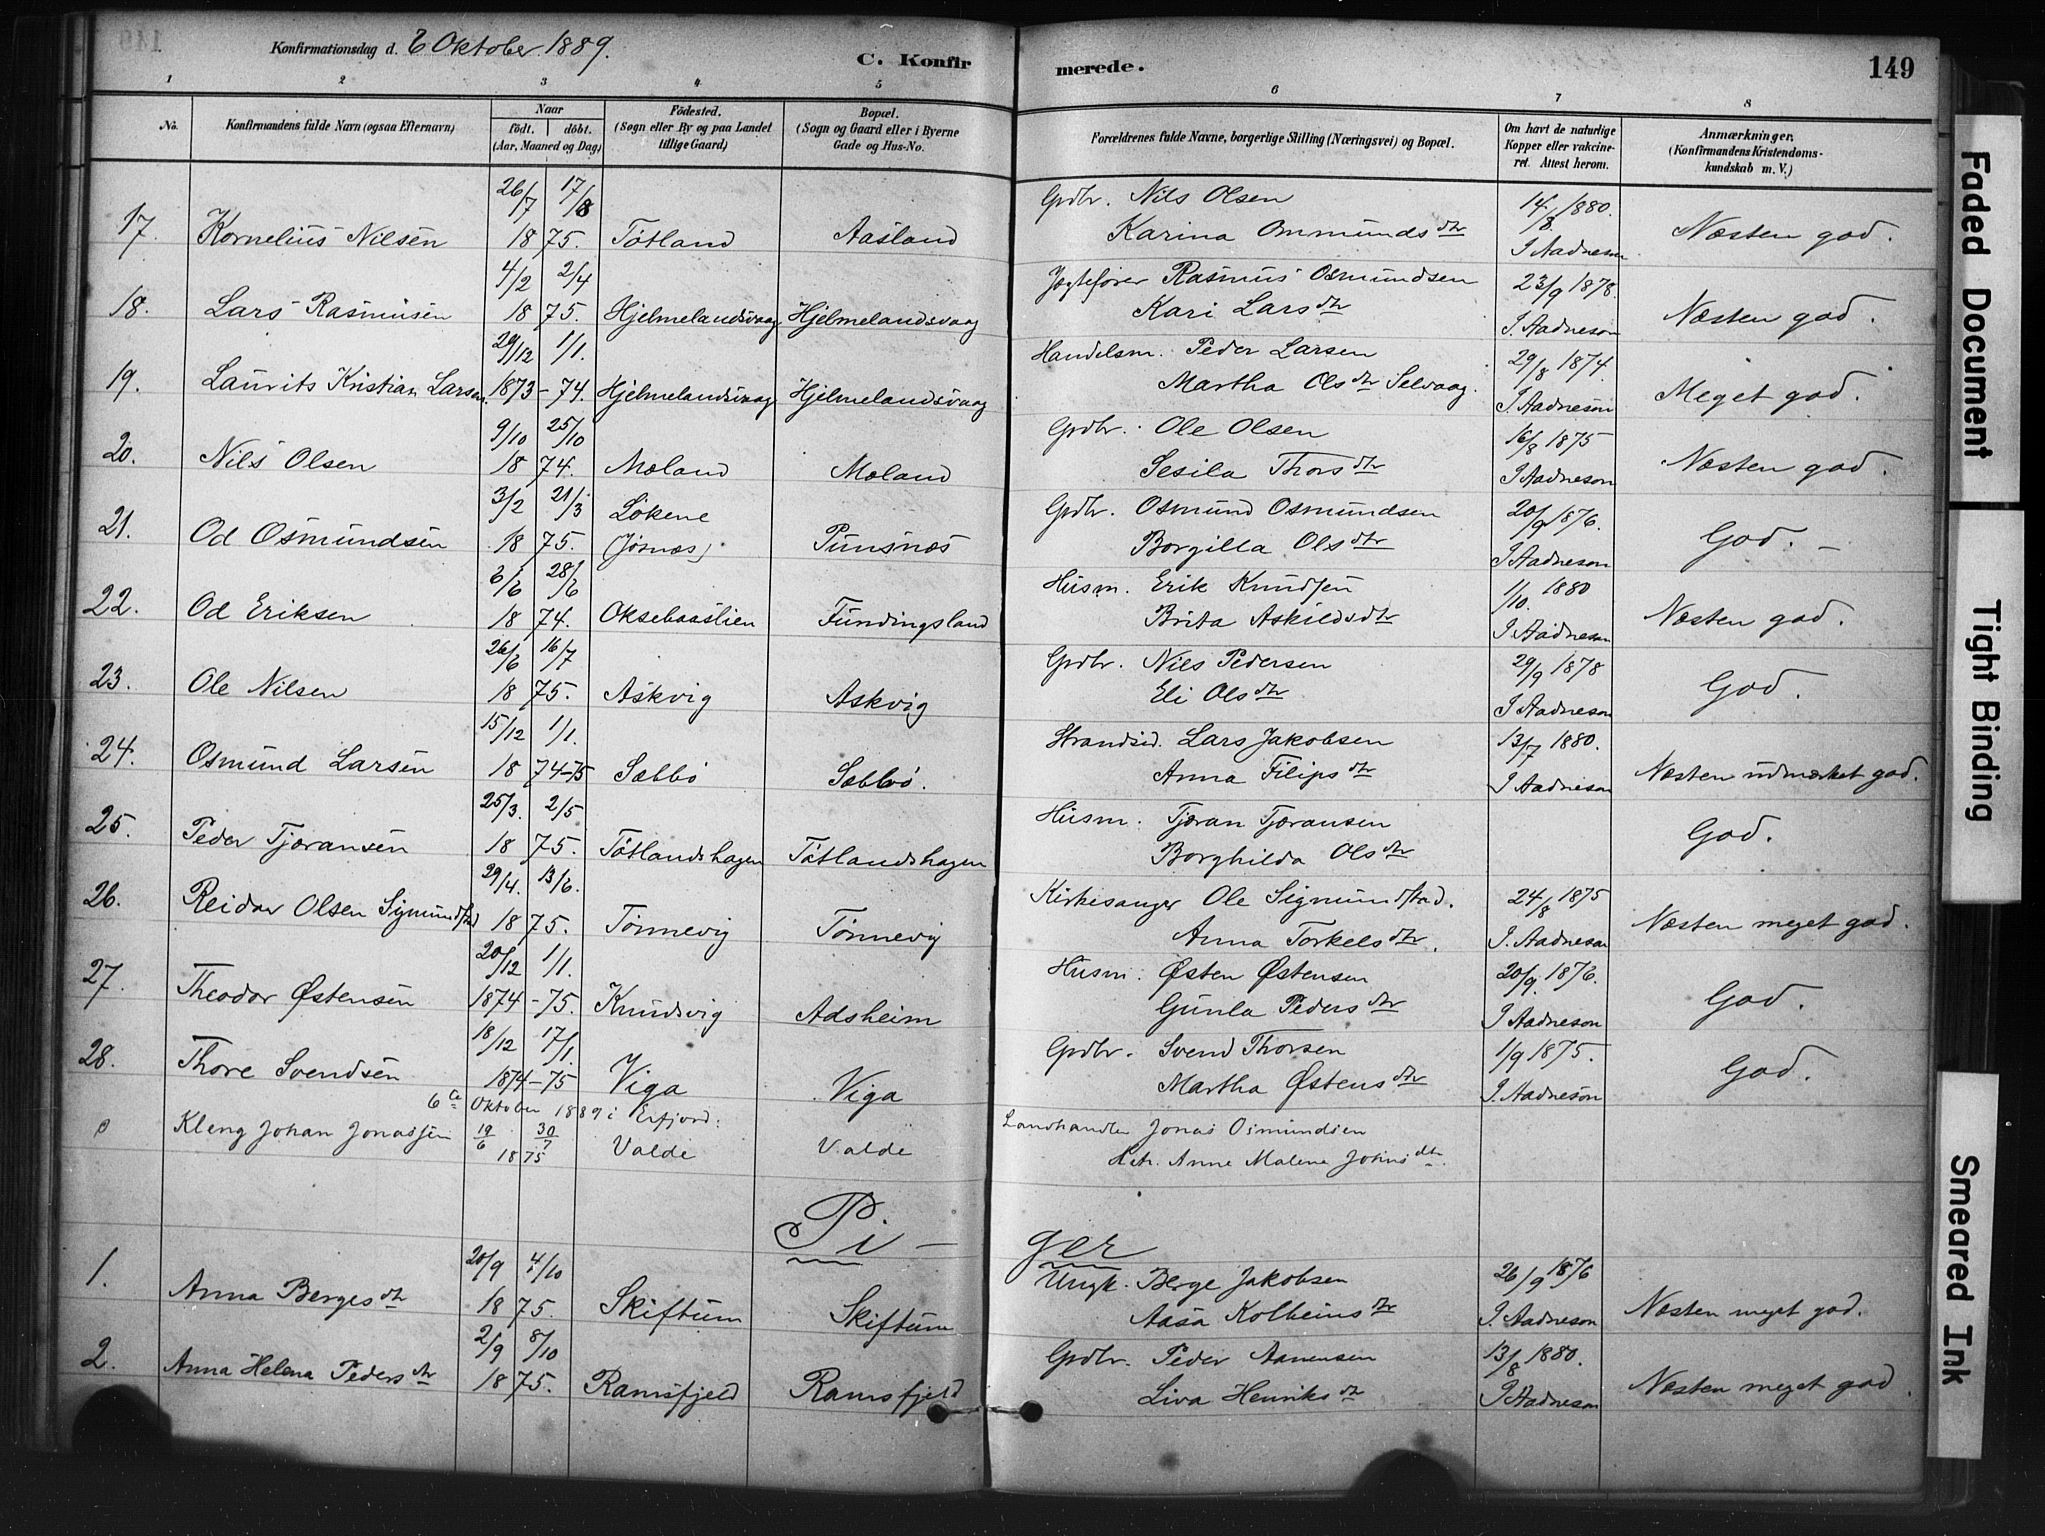 Konfirmationsdag d. 6 Oktober 1889. C. Konfirmerede. 149
1 2 3 4 5 6 7 8
No. Konfirmandens fulde Navn (ogsaa Efternavn) Naar født. døbt. (Aar, Maaned og Dag) Fødested. (Sogn eller By og paa Landet tillige Gaard) Bopæl. (Sogn og Gaard eller i Byerne Gade og Hus-No. Forældrenes fulde Navne, borgerlige Stilling (Næringsvei) og Bopæl. Om havt de naturlige Kopper eller vakcineret. Attest herom. Anmærkninger. (Konfirmandens Kristendomskundskab m. V.)
26/7 17/8 Grdbr. Nils Olsen 14/8 1880.
17. Kornelius Nilsen 1875. Tøtland Aasland Karina Ommundsdtr I Aadneson Næsten god.
4/2 2/4 Jægtefører Rasmus Osmundsen 23/9 1878.
18. Lars Rasmusen 1875. Hjelmelandsvaag Hjelmelandsvaag Kari Larsdtr I. Aadneson Næsten god.
29/12 1/1. Handelsm. Peder Larsen 29/8 1874.
19. Laurits Kristian Larsen. 1873-74. Hjelmelandsvaag Hjelmelandsvaag Martha Olsdtr Selvaag. I Aadneson Meget god.
9/10 25/10 Grdbr. Ole Olsen 16/8 1875
20. Nils Olsen 1874. Mæland Mæland Sesila Thorsdtr I Aadneson Næsten god.
3/2 21/3 Løkene Grdbr. Osmund Osmundsen 20/9 1876.
21. Od Osmundsen 1875. (Jøsnæs) Punsnæs Borgilla Olsdtr I Aadneson God. -
6/6 28/6 Husm. Erik Knudsen 1/10. 1880
22. Od Eriksen 1874. Oksebaaslien Fundingsland Brita Askildsdtr I Aadneson Næsten god.
26/6 16/7 Grdbr. Nils Pedersen 29/9 1878
23. Ole Nilsen 1875. Askvig Askvig Eli Olsdtr I Aadneson God.
15/12 1/1. Strandsid. Lars Jakobsen 13/7 1880.
24. Osmund Larsen 1874-75 Sæbbø Sæbbø. Anna Filipsdtr I Aadneson Næsten udmærket god.
25/3. 2/5 Husm. Tjøran Tjøransen
25. Peder Tjøransen 1875. Tøtlandshagen Tøtlandshagen Borghilda Olsdtr God.
29/4. 13/6. Kirkesanger Ole Sigmundstad. 24/8 1875
26. Reidar Olsen Sigmundstad 1875. Tønnevig Tønnevig Anna Torkelsdtr. I. Aadneson Næsten meget god.
20/12 1/1. Husm. Østen Østensen 20/9. 1876.
27. Theodor Østensen 1874-75. Knudsvig Adsheim Gunla Pedersdtr I Aadneson God.
18/12 17/1. Grdbr. Svend Thorsen 1/9 1875.
28. Thore Svendsen 1874-75 Viga Viga Martha Østensdtr I. Aadneson God.
6te Oktober 1889 i Erfjord:
Kleng Johan Jonassen 19/6 30/7 1875 Valde Valde Landhandler Jonas Osmundsen
Anne Malene Johnsdtr.
Pi-ger
20/9 4/10 Ungk. Berge Jakobsen 26/9 1876
1. Anna Bergesdtr 1875. Skiftum Skiftum Aasa Kolbeinsdtr I. Aadneson Næsten meget god.
2/9 8/10 Grdbr. Peder Aanensen 13/8 1880.
2. Anna Helena Pedersdtr 1875. Ramsfjeld Ramsfjeld Liva Henriksdtr I Aadneson Næsten meget god.
Faded Document
Tight Binding
Smeared Ink